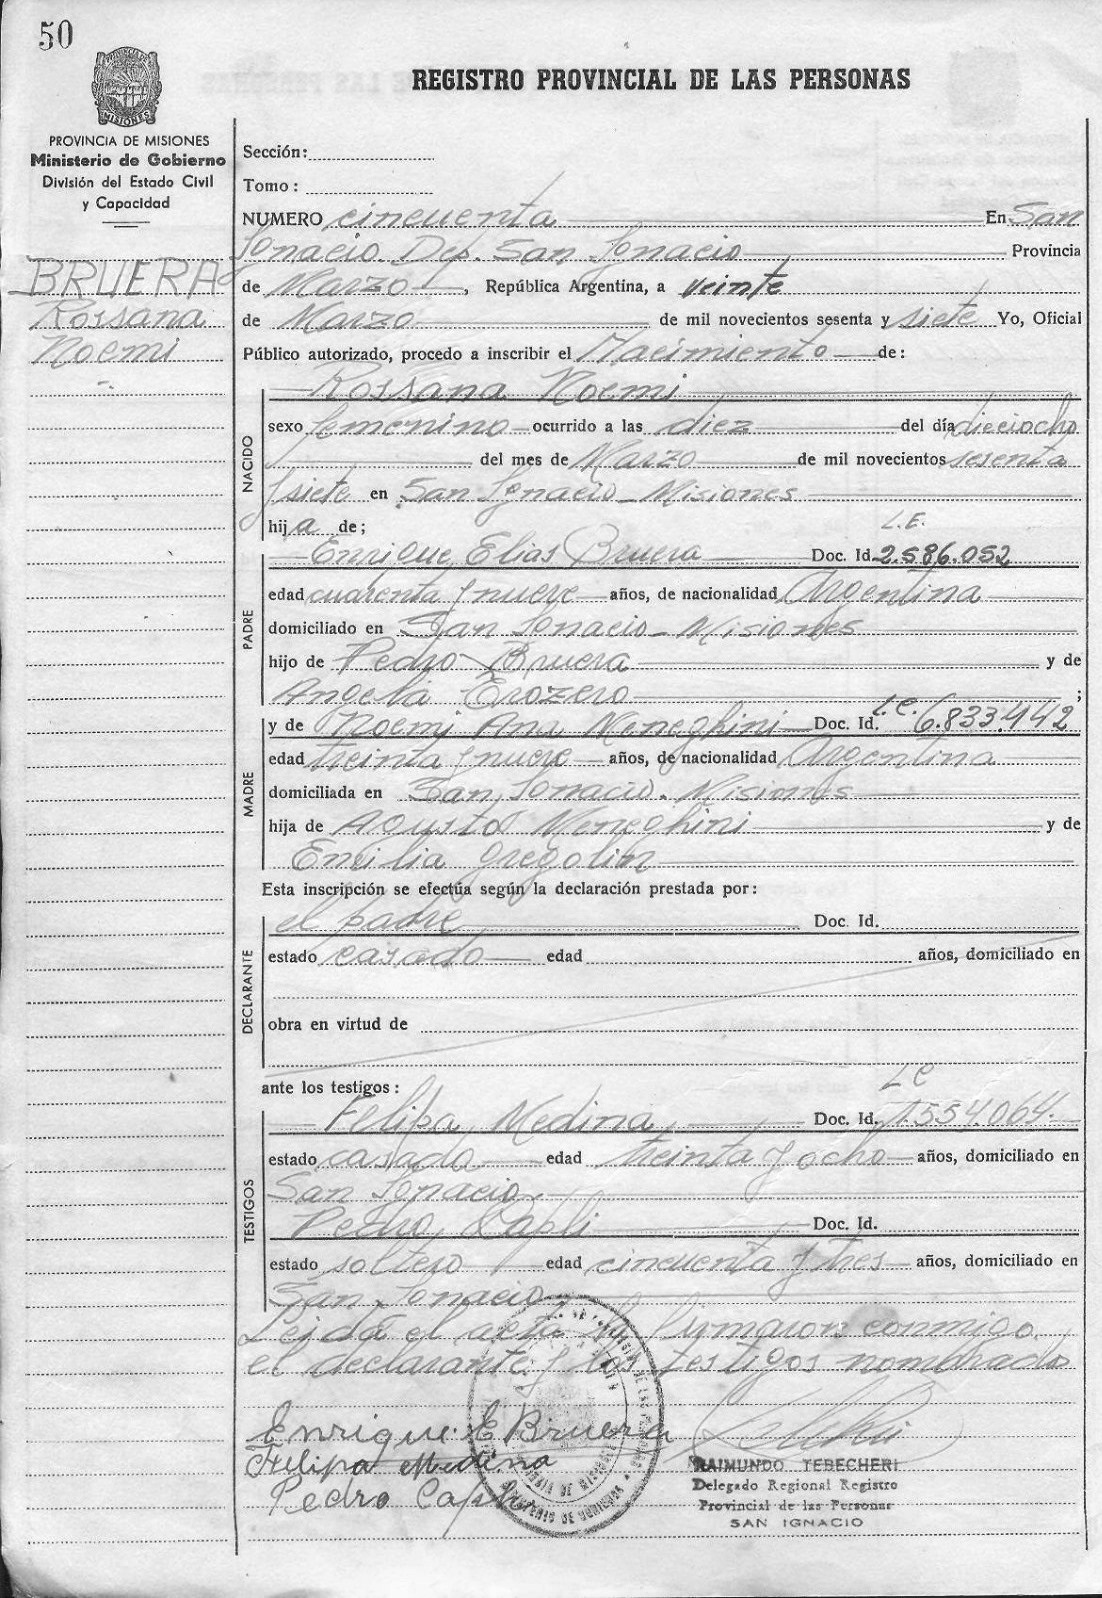 50
PROVINCIA DE MISIONES
Ministerio de Gobierno
División del Estado Civil
y Capacidad
BRUERA
Rossana
Noemi
REGISTRO PROVINCIAL DE LAS PERSONAS
Sección:
Tomo:
NUMERO cincuenta En San
Ignacio. Dep. San Ignacio Provincia
de Marzo, República Argentina, a veinte
de Marzo de mil novecientos sesenta y siete Yo, Oficial
Público autorizado, procedo a inscribir el Nacimiento de:
Rossana Noemi
NACIDO
sexo femenino ocurrido a las diez del día dieciocho
del mes de Marzo de mil novecientos sesenta
y siete en San Ignacio - Misiones
hija de;
L.E.
PADRE
Enrique Elias Bruera Doc. Id. 2.586.052
edad cuarenta y nueve años, de nacionalidad Argentina
domiciliado en San Ignacio - Misiones
hijo de Pedro Bruera y de
Angela Erozero ;
L.C.
MADRE
y de Noemi Ana Meneghini Doc. Id. 6.833.442
edad treinta y nueve años, de nacionalidad Argentina
domiciliada en San Ignacio. Misiones
hija de Agusto Meneghini y de
Emilia Gregolin
Esta inscripción se efectúa según la declaración prestada por:
DECLARANTE
el padre Doc. Id.
estado casado edad años, domiciliado en
obra en virtud de
ante los testigos:
LC
TESTIGOS
Felipa Medina Doc. Id. 1.554.064.
estado casada edad treinta y ocho años, domiciliado en
San Ignacio
Pedro Capli Doc. Id.
estado soltero edad cincuenta y tres años, domiciliado en
San Ignacio
Leida el acta la firmaron conmigo
el declarante y los testigos nombrado
Enrique E Bruera
Felipa Medina
Pedro Capli
RAIMUNDO TEBECHERI
Delegado Regional Registro
Provincial de las Personas
SAN IGNACIO